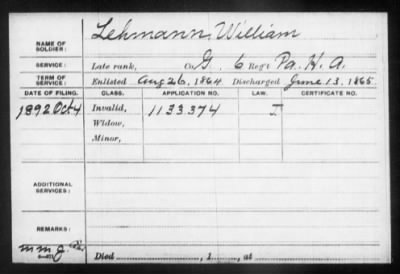 NAME OF SOLDIER: Lehmann, William
SERVICE: Late rank, Co. G. 6 Reg't Pa. H. A.
TERM OF SERVICE: Enlisted Aug 26, 1864 Discharged June 13, 1865
DATE OF FILING. CLASS. APPLICATION NO. LAW. CERTIFICATE NO.
1892 Oct 4 Invalid, 1133374 J
Widow,
Minor,
ADDITIONAL SERVICES:
REMARKS:
Died , 1 , at